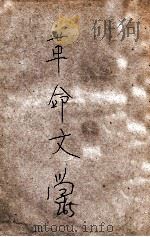 研狗
革命文學
mtoou.info